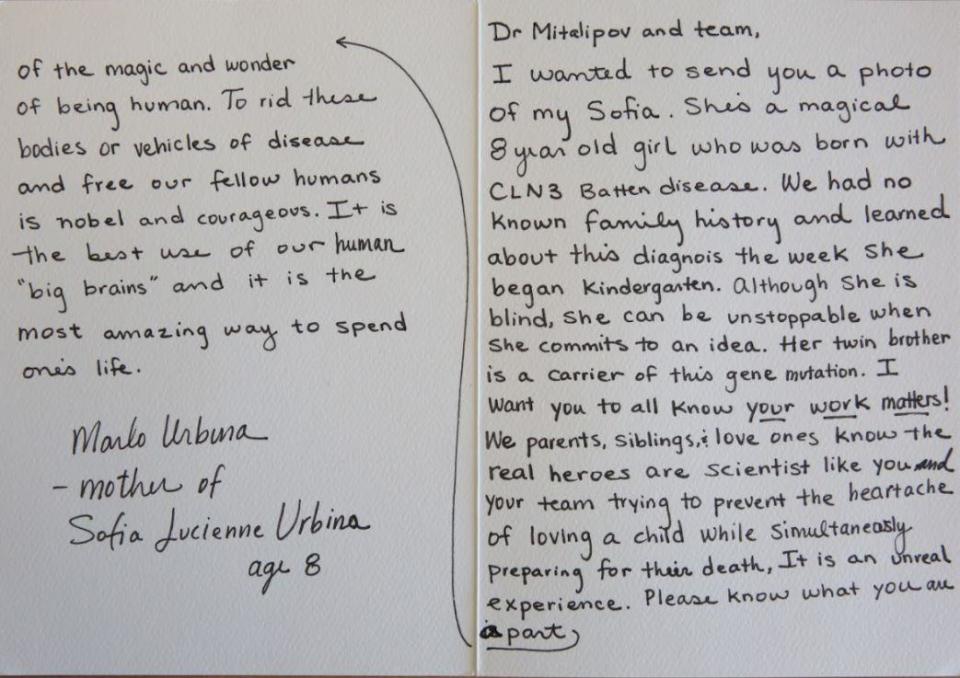 Dr Mitalipov and team,
I wanted to send you a photo
of my Sofia. She's a magical
8 year old girl who was born with
CLN3 Batten disease. We had no
known family history and learned
about this diagnois the week she
began Kindergarten. Although she is
blind, she can be unstoppable when
she commits to an idea. Her twin brother
is a carrier of this gene mutation. I
want you to all know your work matters!
We parents, siblings, & love ones know the
real heroes are scientist like you and
your team trying to prevent the heartache
of loving a child while simultaneously
preparing for their death, It is an unreal
experience. Please know what you are
a part
of the magic and wonder
of being human. To rid these
bodies or vehicles of disease
and free our fellow humans
is nobel and courageous. It is
the best use of our human
"big brains" and it is the
most amazing way to spend
one's life.
Marlo Urbina
- mother of
Sofia Lucienne Urbina
age 8